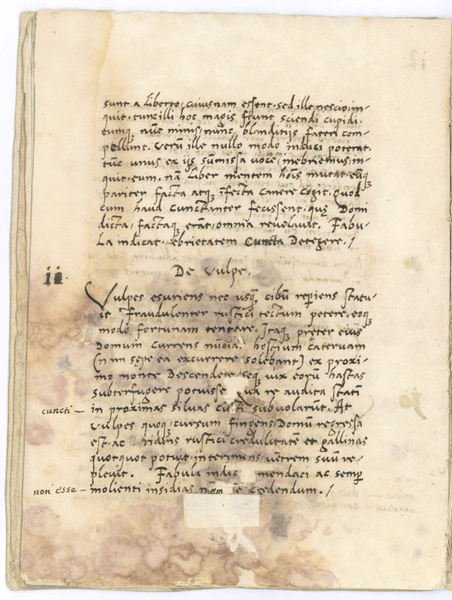 sunt a Liberto, cuiusnam essent. sed ille nescio, in-
quit. tum illi hoc magis fiunt sciendi cupidi.
eumq3 nunc minis, nunc blanditijs fateri com-
pellunt. Verū ille nullo modo induci poterat.
tūc unus ex ijs summissa voce, inebriemus, in-
quit eum. nā Liber mentem hoīs mutat, eūq3
pariter facta atq3 īfecta canere cogit. Quod
cum haud cunctanter fecissent. quę Domi
dicta, factaq3 erāt, omnia revelavit. Fabu-
la indicat. ebrietatem cuncta Detegere. /
De vulpe.
ii Vulpes esuriens nec usq3 cibū reperiens statu-
it se fraudulenter rustici tectum petere, eoq3
modo fortunam tentare. Itaq3 preter eius
Domum currens nūciat hostium catervam
(nam sepe ea excurrere solebant) ex proxi-
mo monte Descendere, seq3 vix eorū hastas
subterfugere potuisse. qua re audita statī
cuncti – in proximas silvas subvolarūt. At
vulpes quoq3 cursum fingens Domū regressa
est, ac ridens rustici credulitate et gallinas
quotquot potuit interimens vētrem suū re-
plevit. Fabula indic mendaci ac semp
non esse – molienti insidias credendum. /